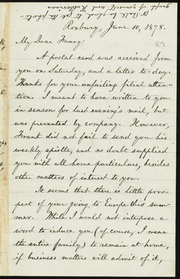 Roxbury, June 10, 1878.
My Dear Fanny:
A postal card was received from
you on Saturday, and a letter to-day.
Thanks for your unfailing filial atten-
tion. I meant to have written to you
in season for last evening's mail, but
was prevented by company. However,
Frank did not fail to send you his
weekly epistle, and no doubt supplied
you with all home particulars, besides
other matters of interest to you.
It seems that there is little pros-
pect of your going to Europe this sum-
mer. While I would not interpose a
word to induce you (of course, I mean
the entire family) to remain at home,
if business matters will admit of it,